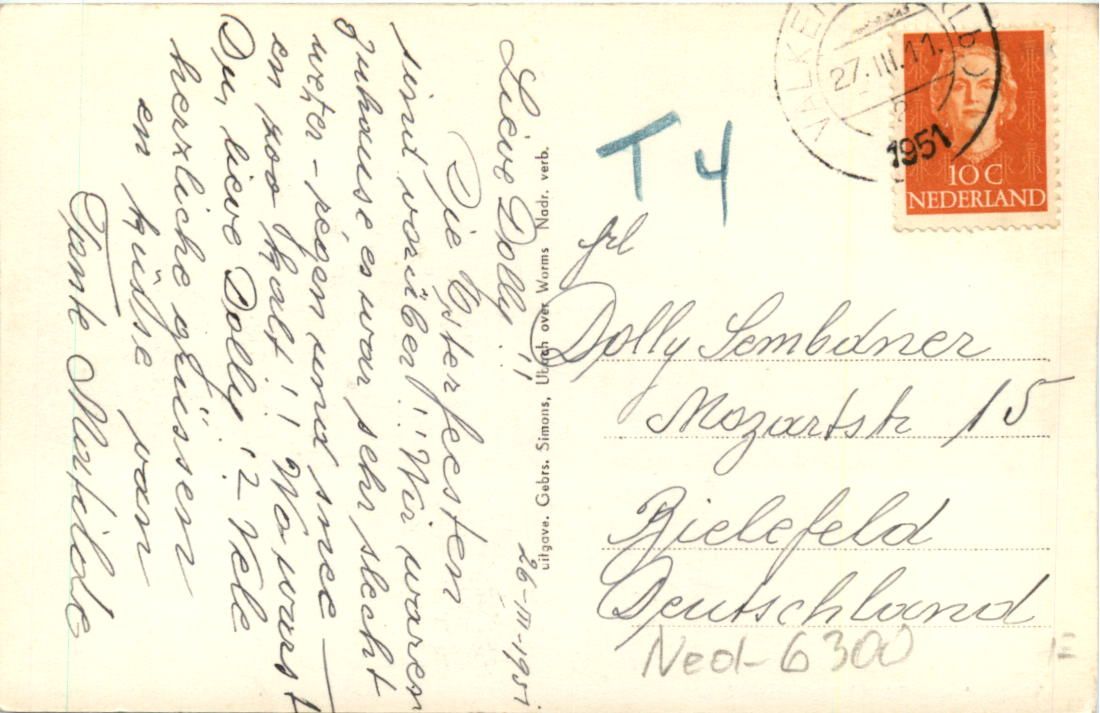 26-III-1951
Lieve Dolly!!
Die Osterfesten
sind vorüber!! Wir waren
Zuhause es war sehr slecht
weter - regen und snee -
en zoo kalt!! Wo warst
Du, lieve Dolly!? Vele
herzliche grüssen
en küsse van
Tante Mathilde
uitgave. Gebrs. Simons, Ubach over Worms Nadr. verb.
T 4
VALKEN
27.III.11.
1951
10 C
NEDERLAND
frl
Dolly Sembdner
Mozartstr 15
Bielefeld
Deutschland
Ned-6300